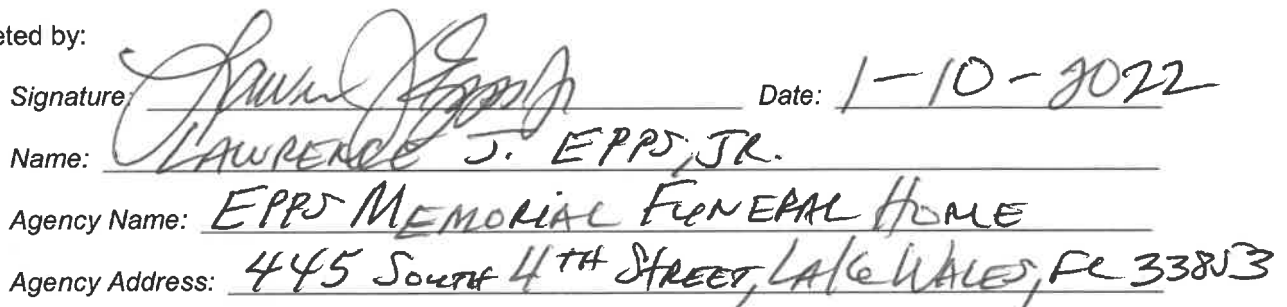 eted by:
Signature: Lawren J Epps Jr Date: 1-10-2022
Name: LAWRENCE J. EPPS, JR.
Agency Name: EPPS MEMORIAL FUNERAL HOME
Agency Address: 445 SOUTH 4TH STREET, LAKE WALES, FL 33853